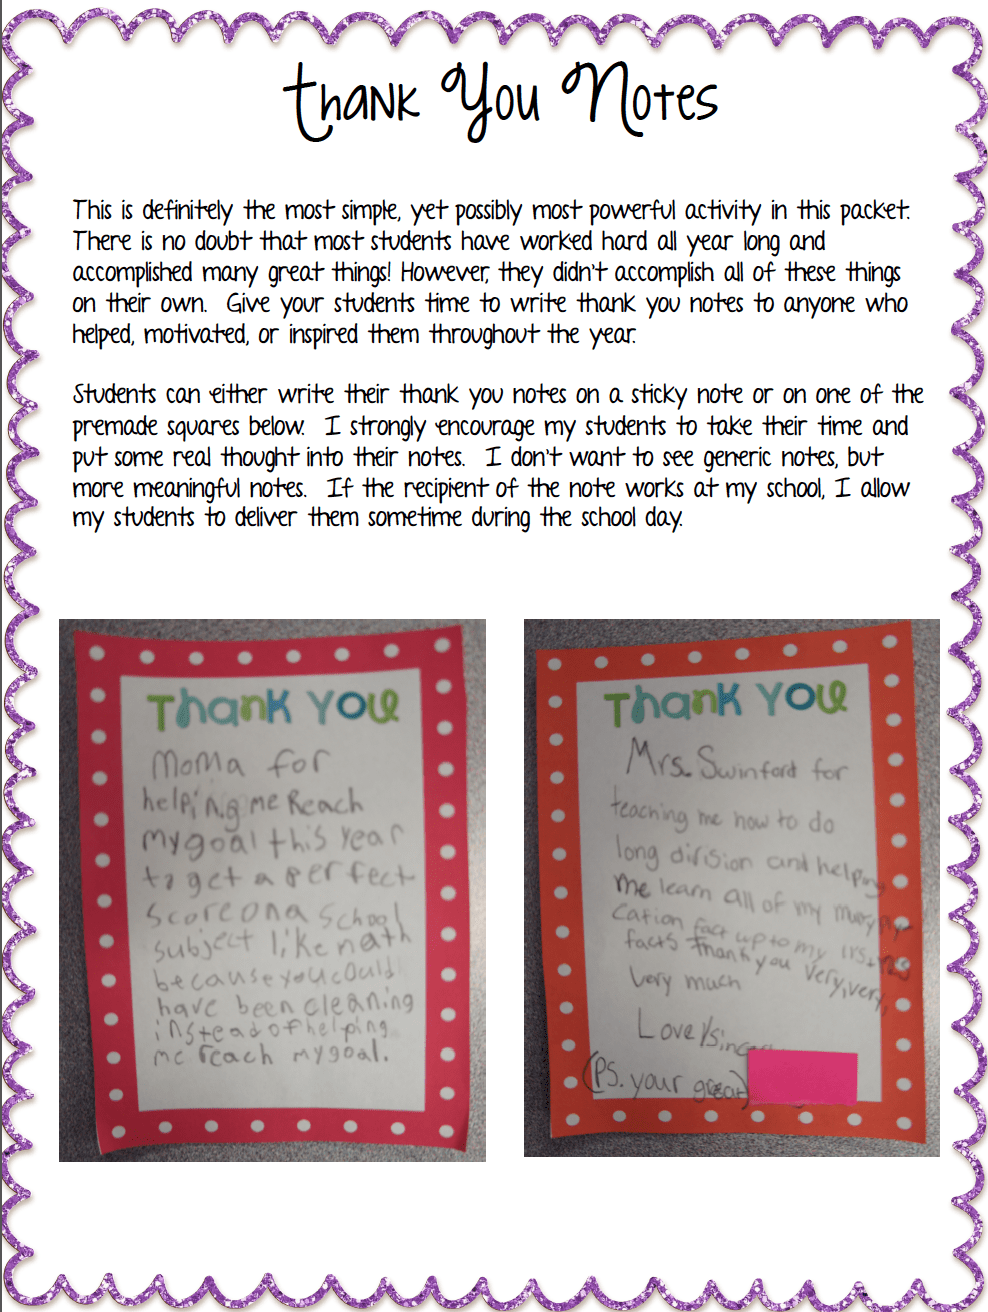 Thank You Notes
This is definitely the most simple, yet possibly most powerful activity in this packet.
There is no doubt that most students have worked hard all year long and
accomplished many great things! However, they didn't accomplish all of these things
on their own. Give your students time to write thank you notes to anyone who
helped, motivated, or inspired them throughout the year.
Students can either write their thank you notes on a sticky note or on one of the
premade squares below. I strongly encourage my students to take their time and
put some real thought into their notes. I don't want to see generic notes, but
more meaningful notes. If the recipient of the note works at my school, I allow
my students to deliver them sometime during the school day.
Thank You
Moma for
helping me Reach
my goal this year
to get a perfect
score on a school
subject like math
because you could
have been cleaning
instead of helping
me reach my goal.
Thank You
Mrs. Swinford for
teaching me how to do
long division and helping
me learn all of my
cation fact up to my
facts Thank you very, very,
very much
Love/
(Ps. your great)